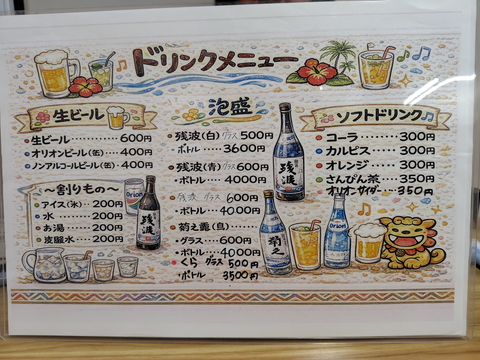 ドリンクメニュー
生ビール
生ビール 600円
オリオンビール(缶) 400円
ノンアルコールビール(缶) 400円
〜割りもの〜
アイス(氷) 200円
水 200円
お湯 200円
炭酸水 200円
泡盛
残波(白) グラス 500円
ボトル 3600円
残波(青) グラス 600円
ボトル 4000円
残波 グラス 600円
ボトル 4000円
菊之露(島)
グラス 600円
ボトル 4000円
くら グラス 500円
ボトル 3500円
ソフトドリンク
コーラ 300円
カルピス 300円
オレンジ 300円
さんぴん茶 350円
オリオンサイダー 350円
残波
残波
菊之
Orion
Orion